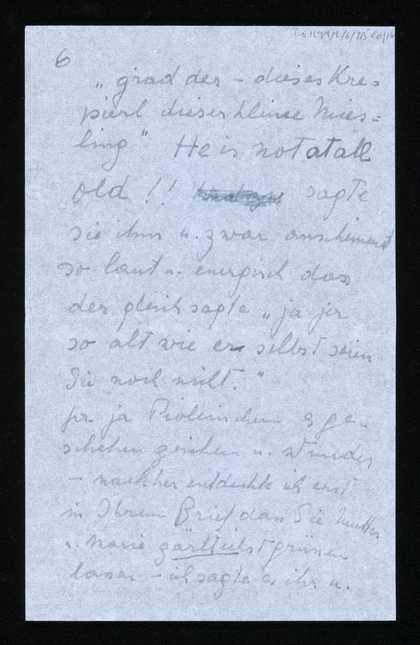 6
„grad der – dieses Kre=
pierl dieser kleine Mies=
ling" He is not at all
old !! sagte
sie ihm u. zwar anscheinend
so laut u. energisch dass
der gleich sagte „ja ja
so alt wie er selbst seien
Sie noch nicht."
ja ja es ge-
schehen zeichen u. Wunder
– nachher entdeckte ich erst
in Ihrem Brief dass Sie Mutter
u. Marie zärtlichst grüssen
lassen – ich sagte es ihr u.